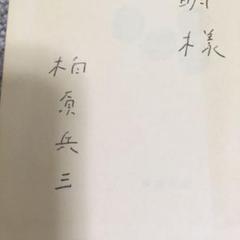 様
柏原兵三